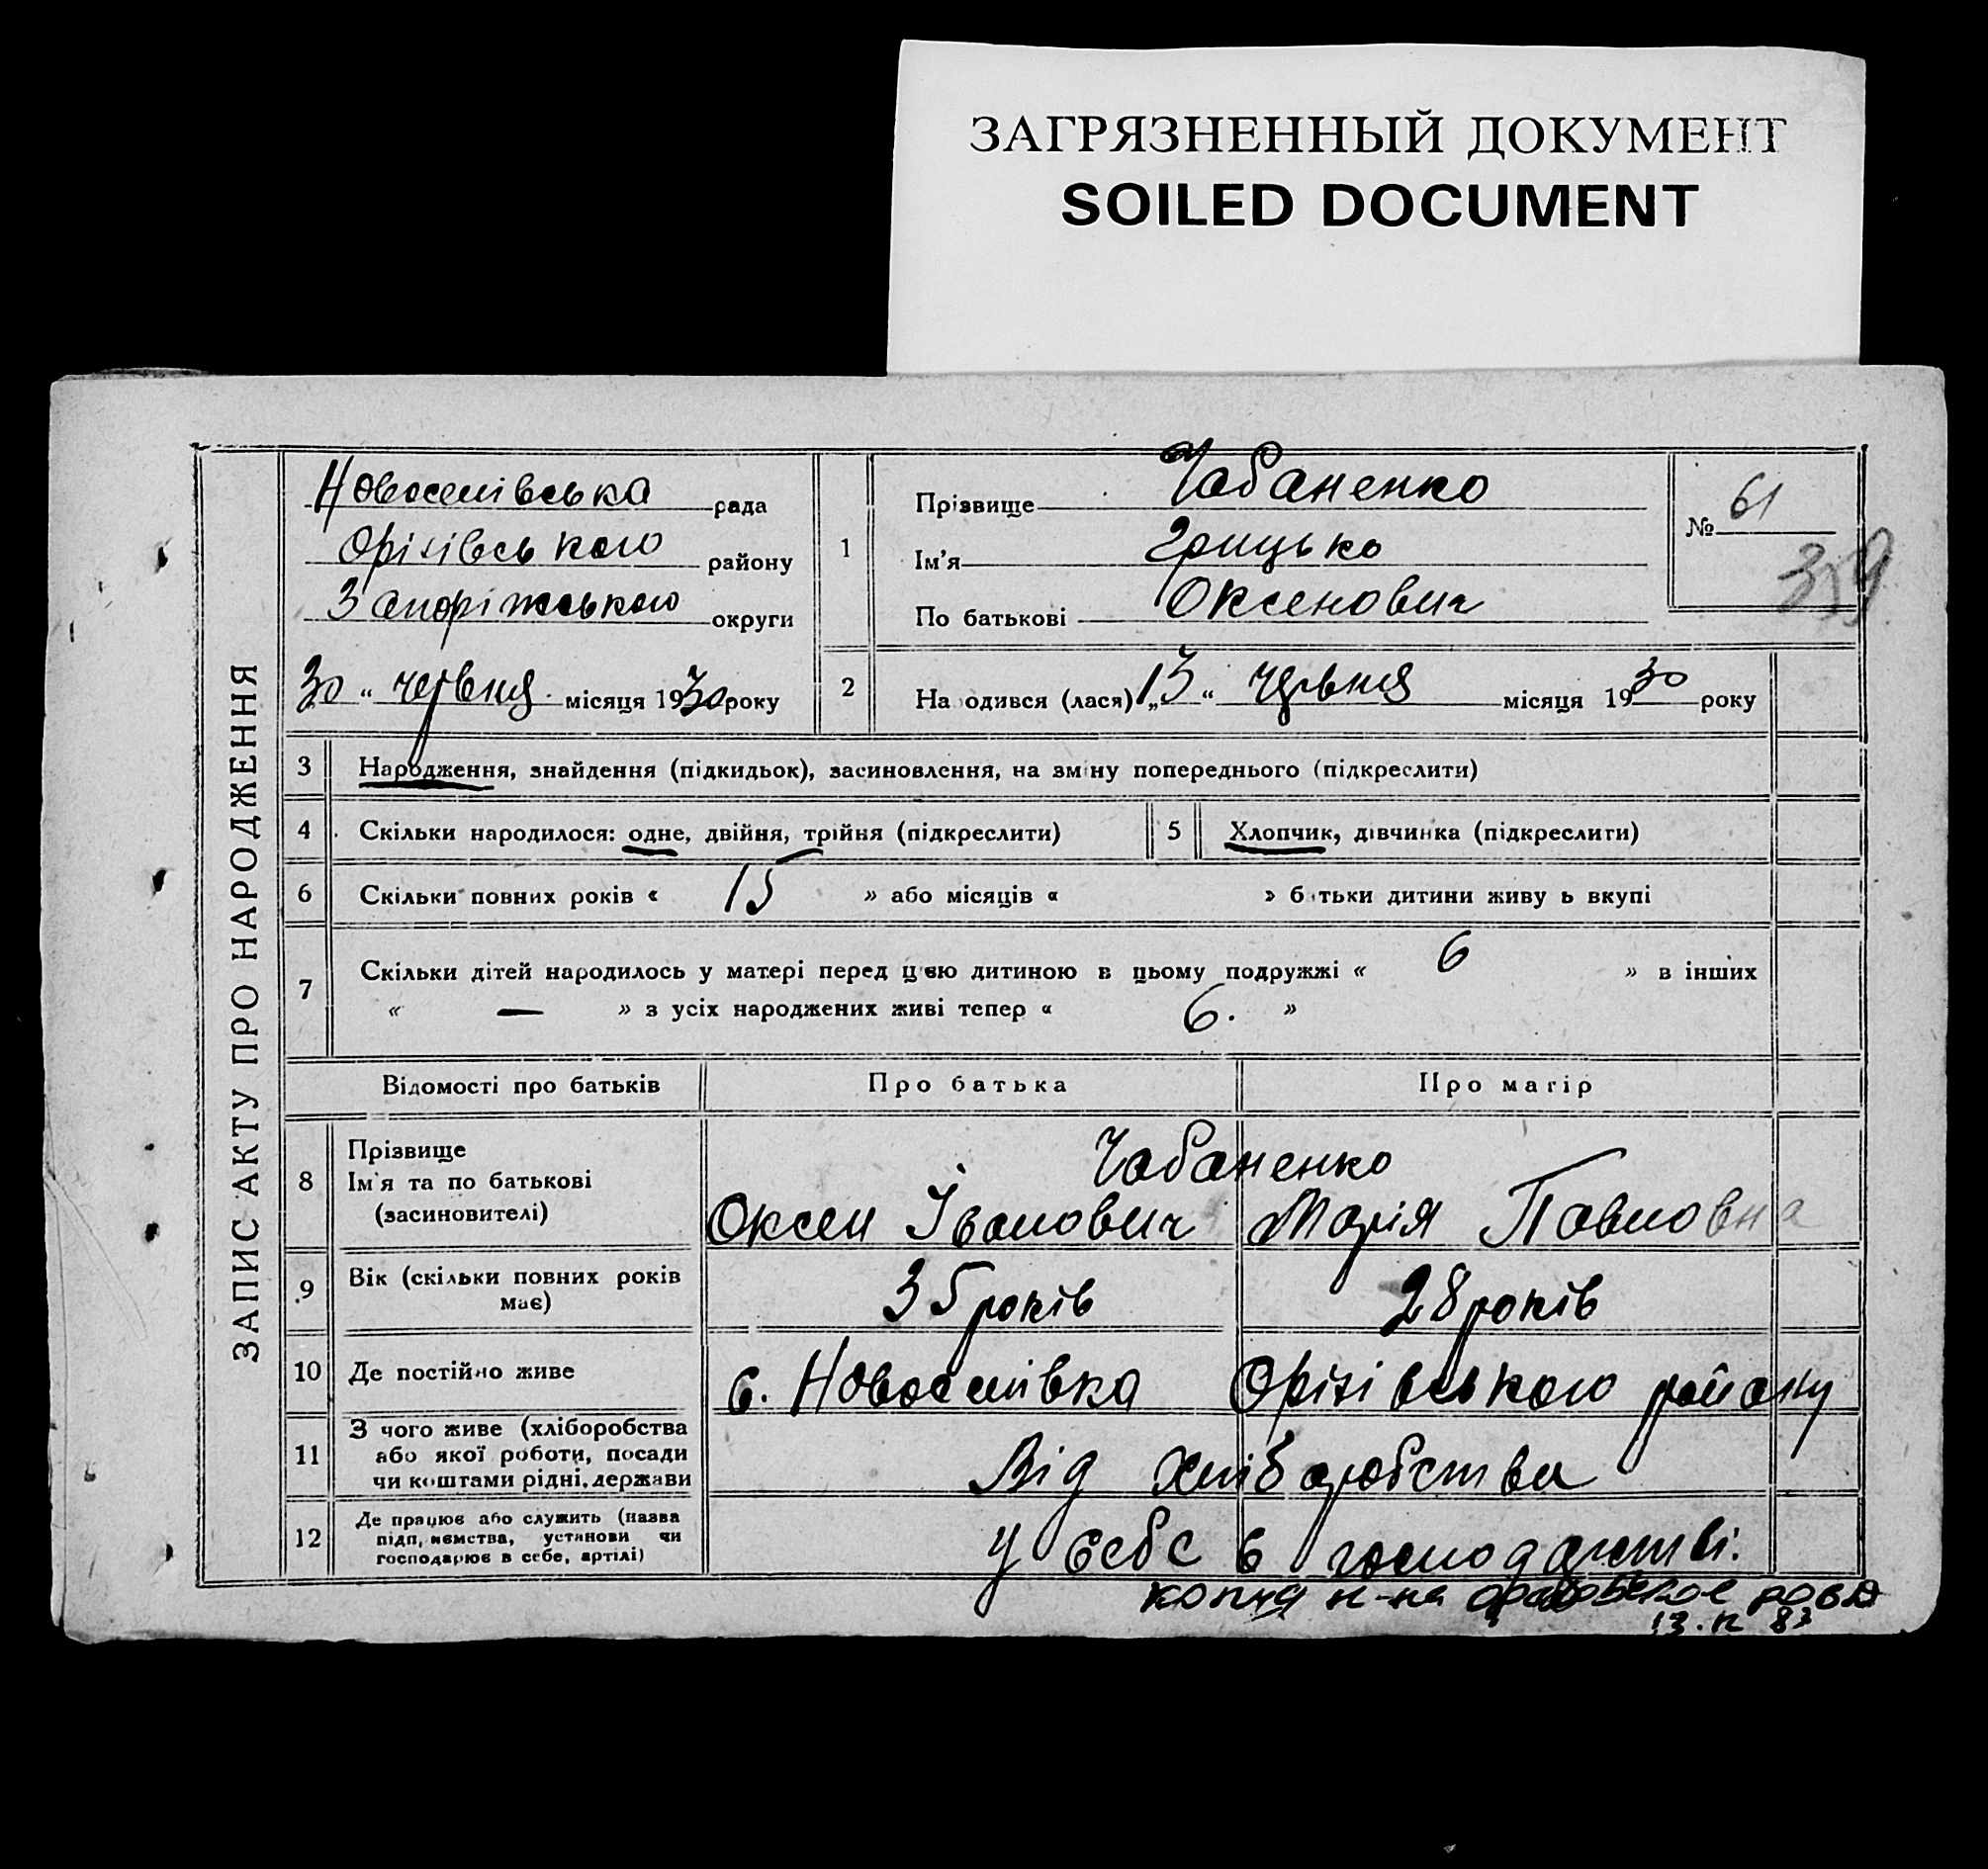 ЗАГРЯЗНЕННЫЙ ДОКУМЕНТ
SOILED DOCUMENT
ЗАПИС АКТУ ПРО НАРОДЖЕННЯ
Новоселівська рада
Оріхівського району
Запоріжського округи
30 “ червня місяця 1930 року
1
Прізвище Чабаненко
Ім’я Грицько
По батькові Оксенович
№ 61
2
На одився (лася) „13“ червня місяця 1930 року
3 Народження, знайдення (підкидьок), засиновлення, на зміну попереднього (підкреслити)
4 Скільки народилося: одне, двійня, трійня (підкреслити) 5 Хлопчик, дівчинка (підкреслити)
6 Скільки повних років « 15 » або місяців « » б тьки дитини живу ь вкупі
7 Скільки дітей народилось у матері перед цією дитиною в цьому подружжі « 6 » в інших
« — » з усіх народжених живі тепер « 6. »
Відомості про батьків Про батька Про матір
8 Прізвище
Ім’я та по батькові
(засиновителі)
Чабаненко
Оксен Іванович Марія Павловна
9 Вік (скільки повних років
має)
35 років 28 років
10 Де постійно живе с. Новоселівка Оріхівського району
11 З чого живе (хліборобства
або якої роботи, посади
чи коштами рідні, держави
Від хліборобства
12 Де працює або служить (назва
підприємства, установи чи
господарює в себе, артілі)
у себе в господарстві.
копия н-на
13. 12 83